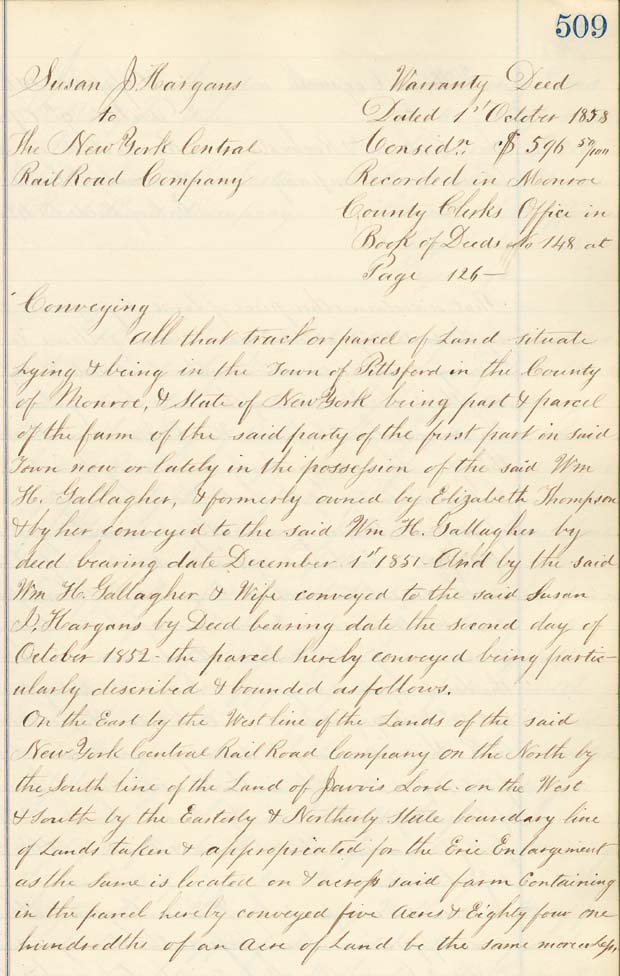 509
Susan J Hargans
to
The New York Central
Rail Road Company
Warranty Deed
Dated 1st October 1858
Considn. $596 50/100
Recorded in Monroe
County Clerks Office in
Book of Deeds No 148 at
Page 126—
Conveying
All that tract or parcel of Land situate
lying & being in the Town of Pittsford in the County
of Monroe, & State of New York being part & parcel
of the farm of the said party of the first part in said
Town now or lately in the possession of the said Wm
H. Gallagher, & formerly owned by Elizabeth Thompson
& by her conveyed to the said Wm H. Gallagher by
deed bearing date December 1st 1851– And by the said
Wm H. Gallagher & Wife conveyed to the said Susan
J. Hargans by Deed bearing date the second day of
October 1852– the parcel hereby conveyed being partic–
ularly described & bounded as follows.
On the East by the West line of the Lands of the said
New York Central Rail Road Company on the North by
the South line of the Land of Jarvis Lord– on the West
& South by the Easterly & Northerly State boundary line
of Lands taken & appropriated for the Erie Enlargement
as the same is located on & across said farm Containing
in the parcel hereby conveyed five Acres & Eighty four one
hundredths of an Acre of Land be the same more or less,